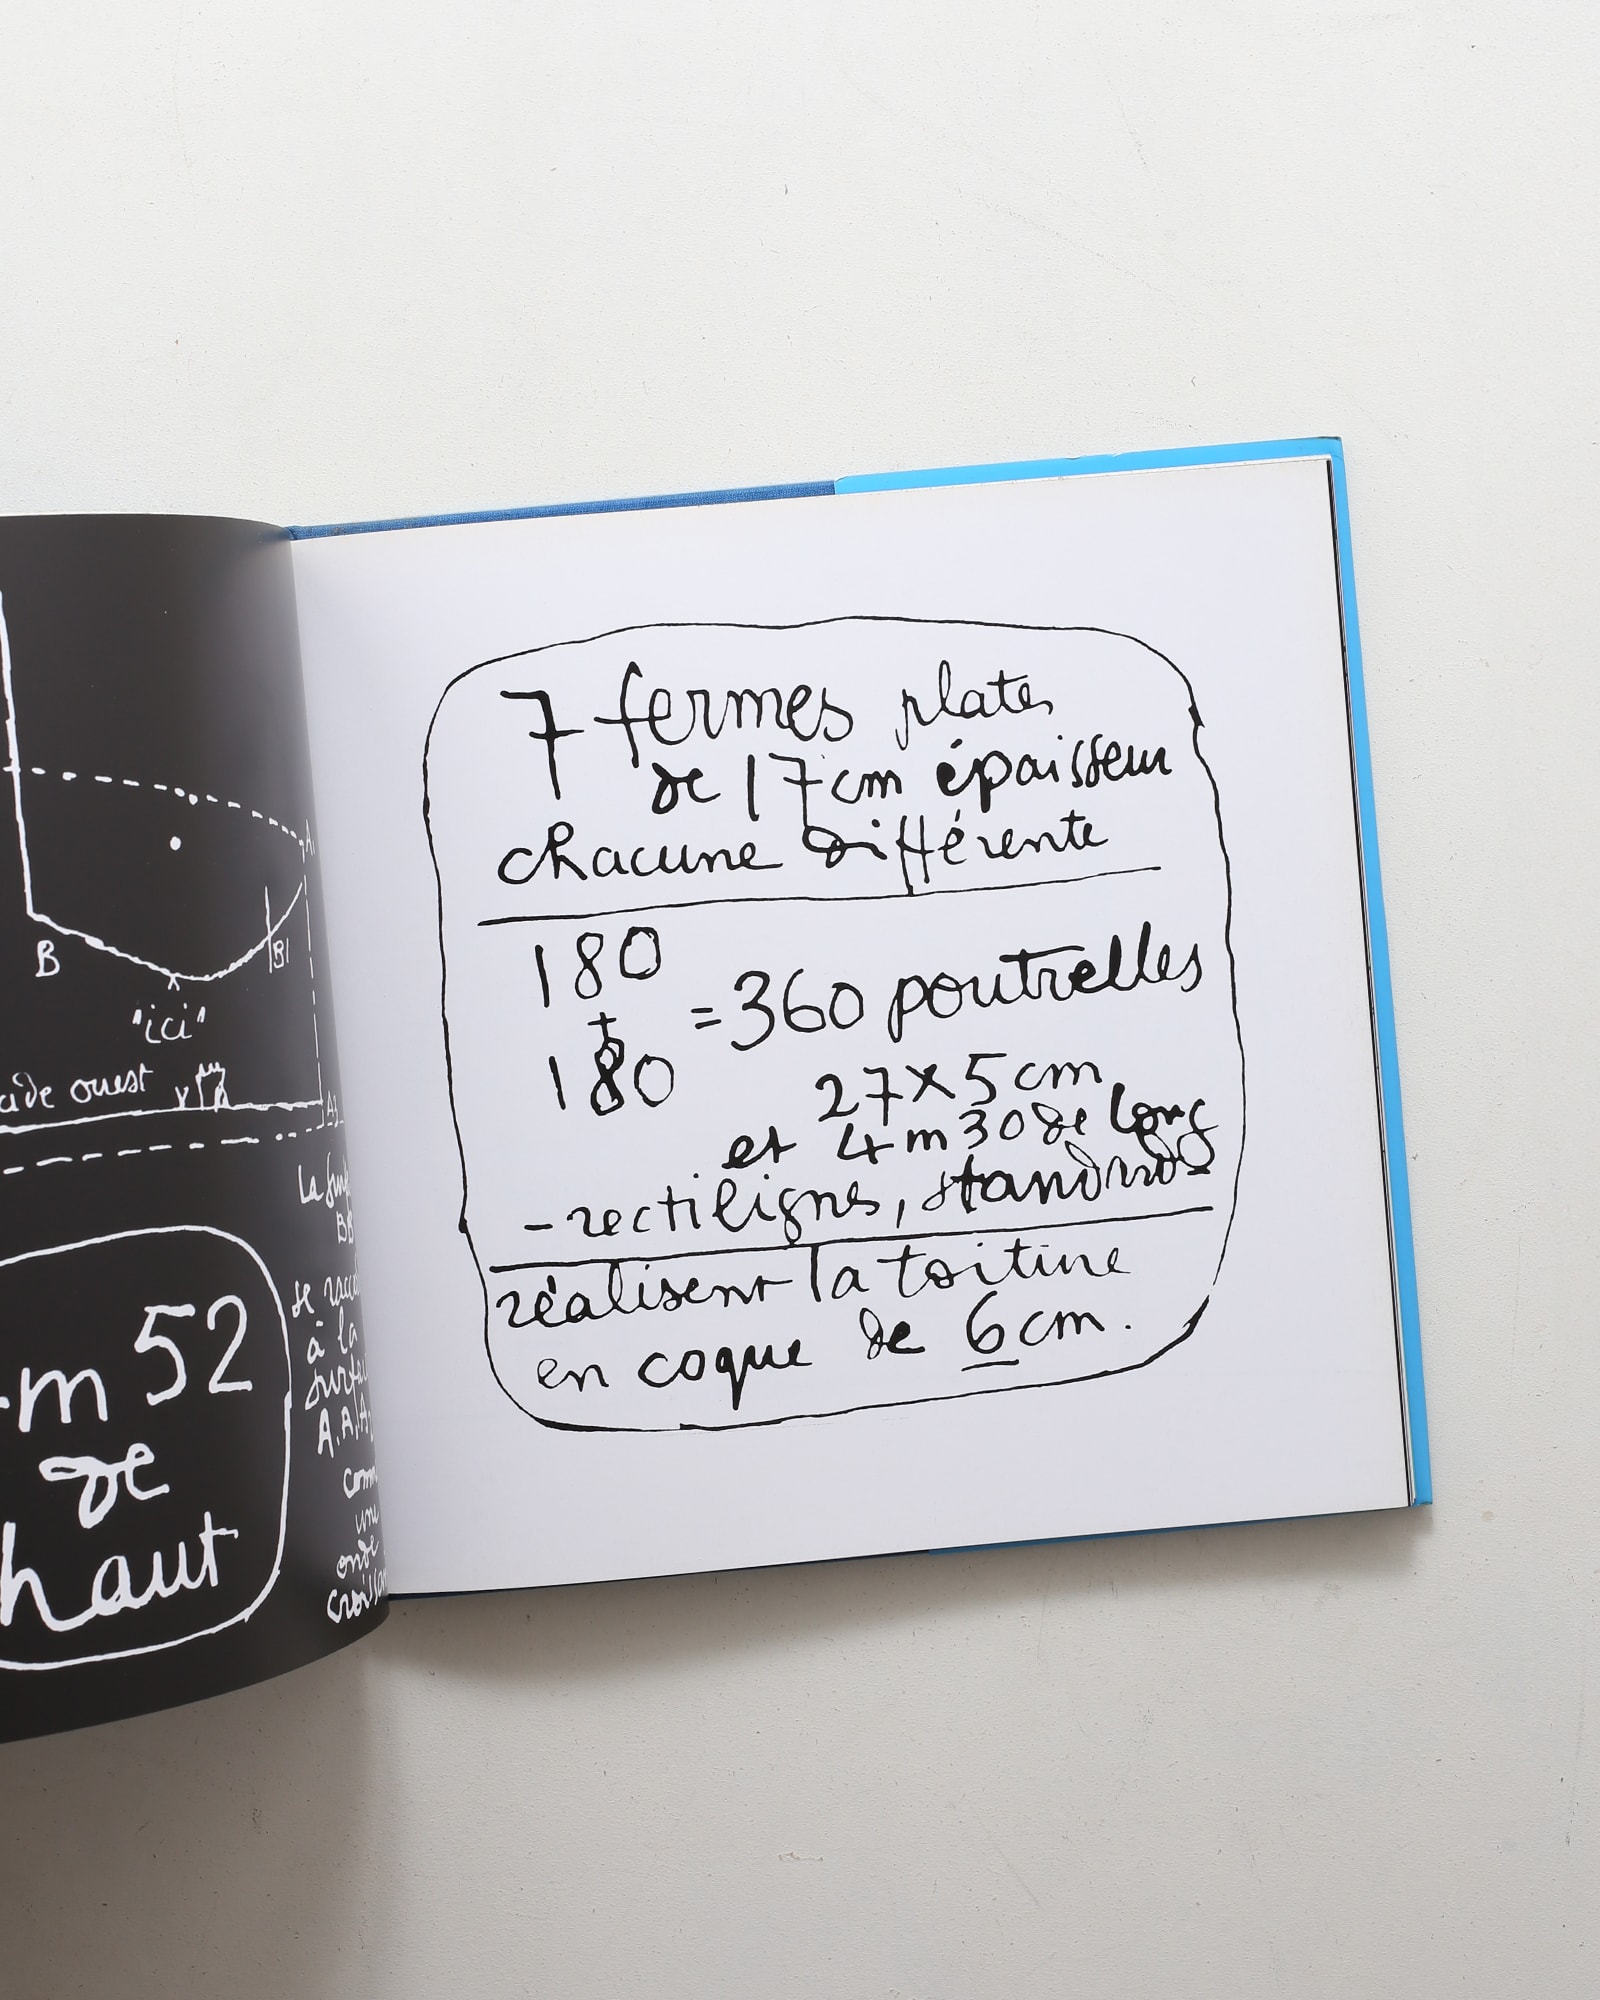 B
B1
"ici"
ouest
m 52
de
haut
La
BB
se
à la
une
onde
7 fermes plates
de 17 cm épaisseur
chacune différente
180
+
180
= 360 poutrelles
27 x 5 cm
et 4 m 30 de long
- rectilignes, standards
réalisent la toiture
en coque de 6 cm.